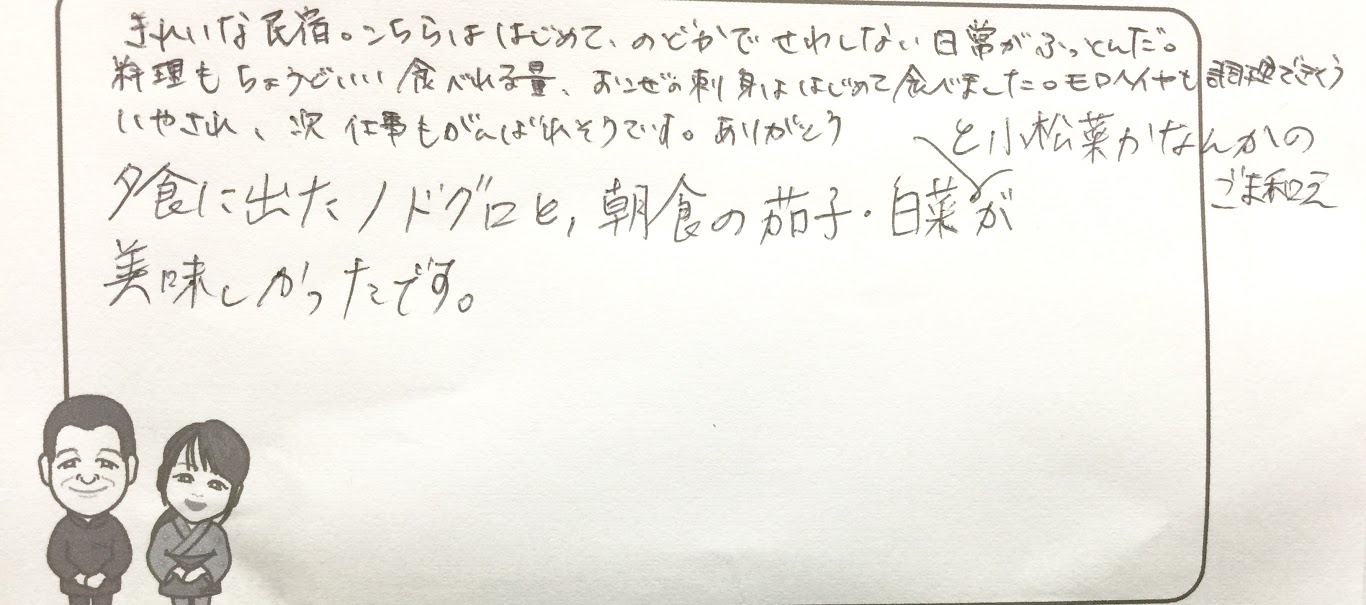 きれいな民宿。こちらははじめて、のどかで せわしない日常がふっとんだ。
料理もちょうどいい食べれる量、おこぜの刺身ははじめて食べました。モロヘイヤも調理できそう
いやされ、次仕事もがんばれそうです。ありがとう
と小松菜かなんかの
ごま和え
夕食に出たノドグロと、朝食の茄子・白菜が
美味しかったです。